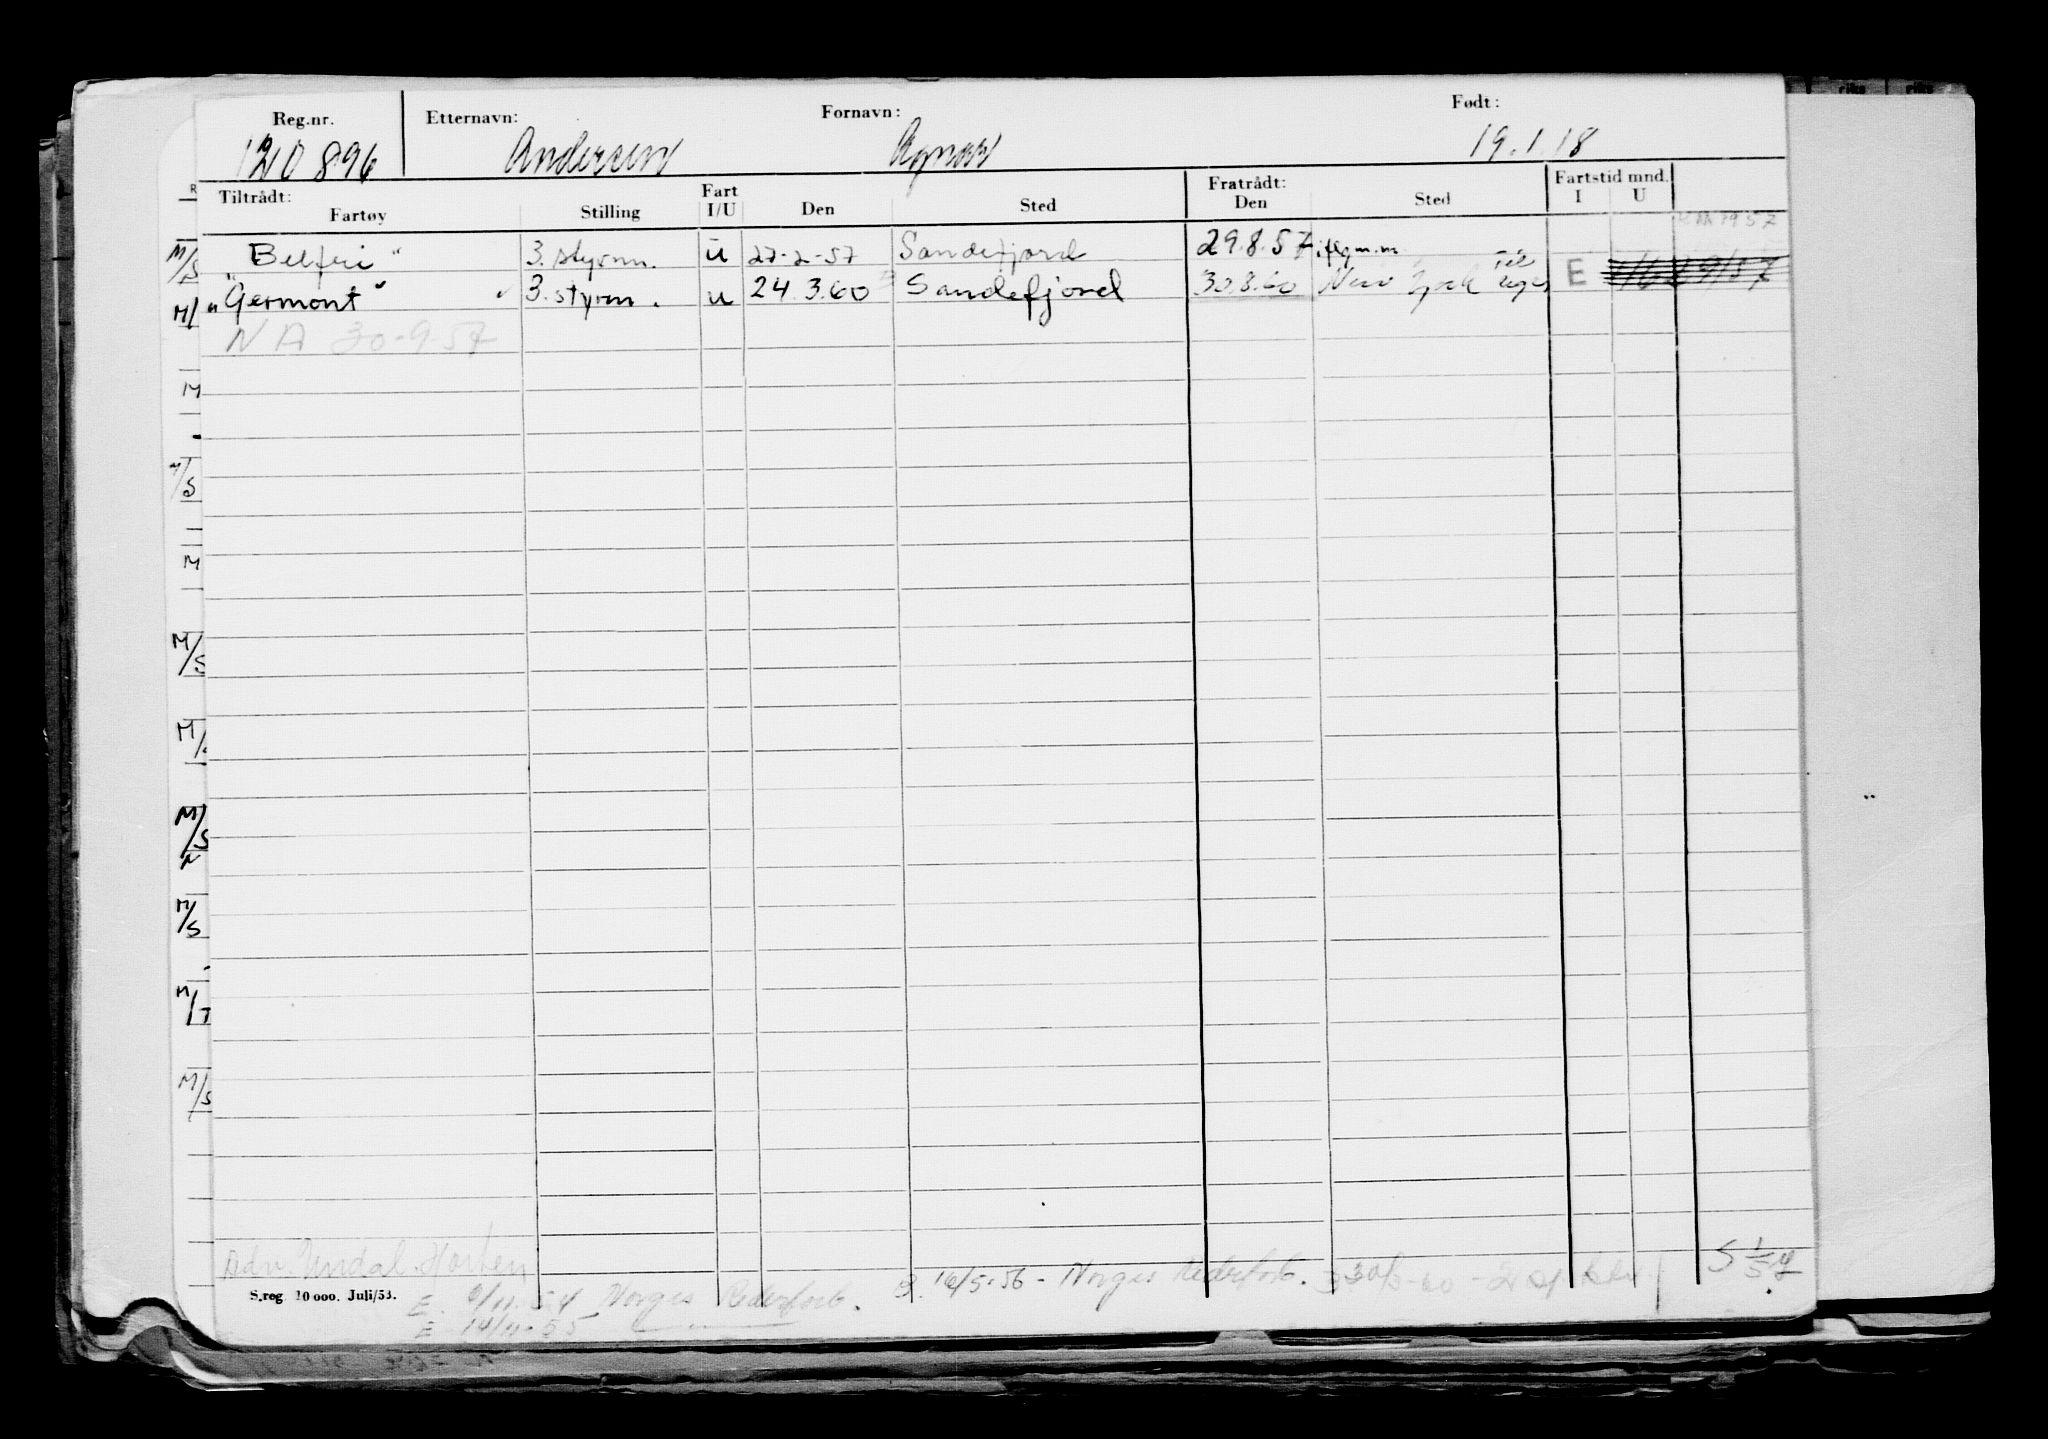 Reg.nr. Etternavn: Fornavn: Født:
120896 Andersen Agnar 19.1.18
Tiltrådt: Fart Fratrådt: Fartstid mnd.
Fartøy Stilling I/U Den Sted Den Sted I U
1957
M/S "Belfri" 3. styrm. u 27-2-57 Sandefjord 29.8.57 iflg.m.m.
M/ "Germont" 3. styrm. u 24.3.60 Sandefjord 30.8.60 New York E
NA 30-9-57
M
M/S
M
M/S
M/
M/S
M/S
M/T
M/S
Adv. Undal. Horten
S.reg 10 000. Juli/53.
E. 9/11-54 Norges Rederforb. 16/5-56 - Norges Rederforb.
E 14/11-55